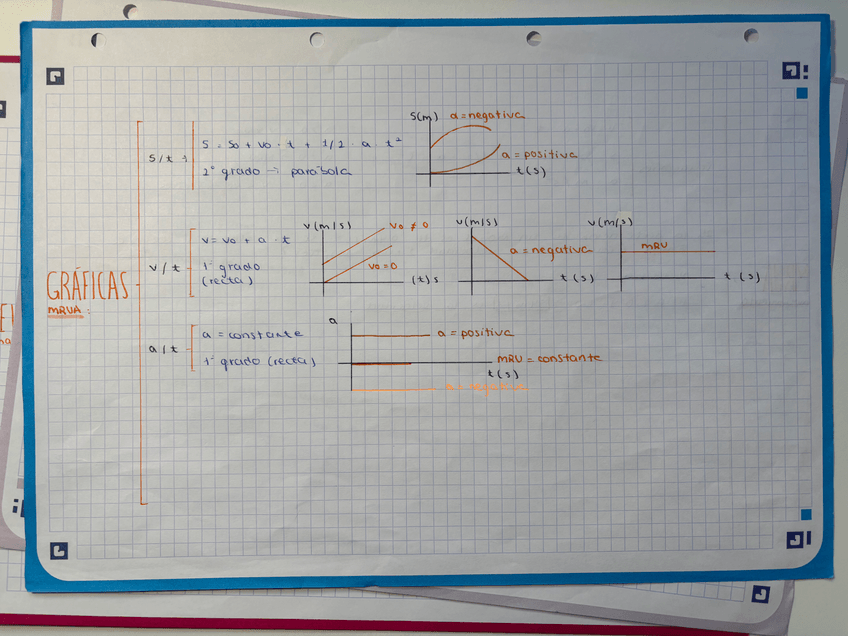 GRÁFICAS
MRUA:
S/t
S = So + vo · t + 1/2 · a · t²
2º grado → parábola
S(m)
a = negativa
a = positiva
t(s)
v/t
v = vo + a · t
1º grado
(recta)
v(m/s)
vo ≠ 0
vo = 0
(t)s
v(m/s)
a = negativa
t(s)
v(m/s)
MRU
t(s)
a/t
a = constante
1º grado (recta)
a
a = positiva
MRU = constante
t(s)